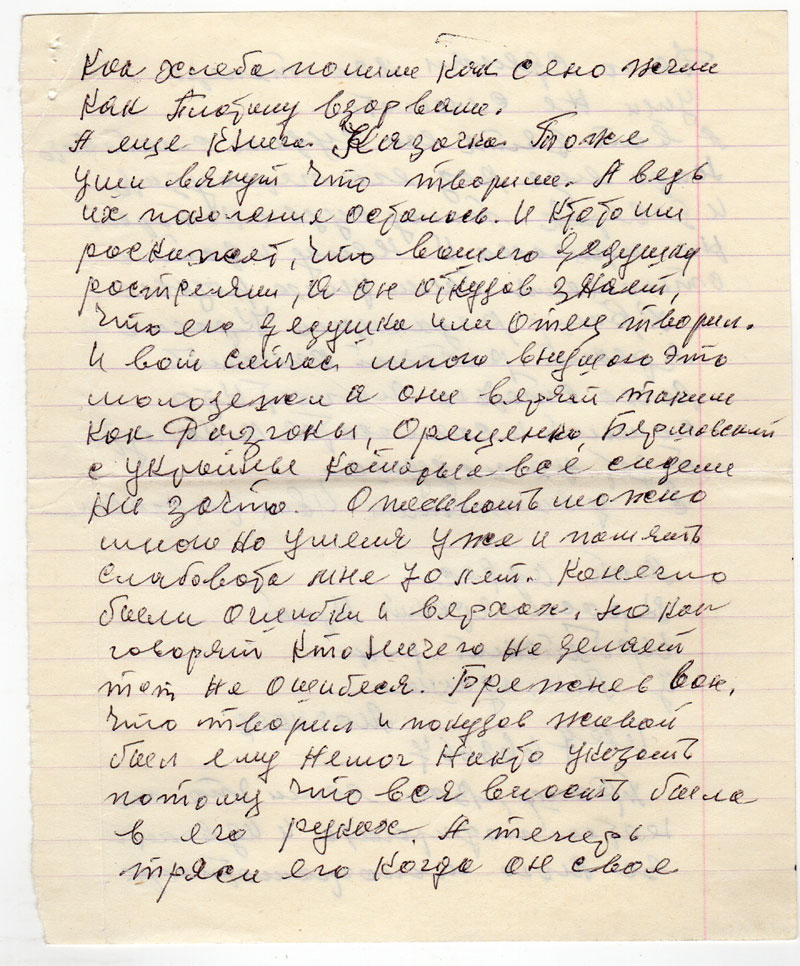 Как хлеба полили Как сено жгли
Как Плотину взорвали.
А еще Книга Казачка. Тоже
уши вянут что творили. А ведь
их поколение осталось. И Ктото им
роскажет, что вашего дедушку
ростреляли, а он откудов знает,
что его дедушка или отец творил.
И вот сейчас много внушают это
молодежи а они верят таким
Как Разгоны, Орещенко,
с украйны которые всё сидели
Ни зачто. Описывать можно
много но уменя уже и память
слабовота мне 70 лет. Конечно
были ошибки и верхах, но как
говорят Кто ничего не делает
тот не ошибеся. Брежнев вон,
что творил и покудов живой
был ему Немог Никто указать
потому что вся власть была
в его руках. А теперь
тряси его Когда он свое